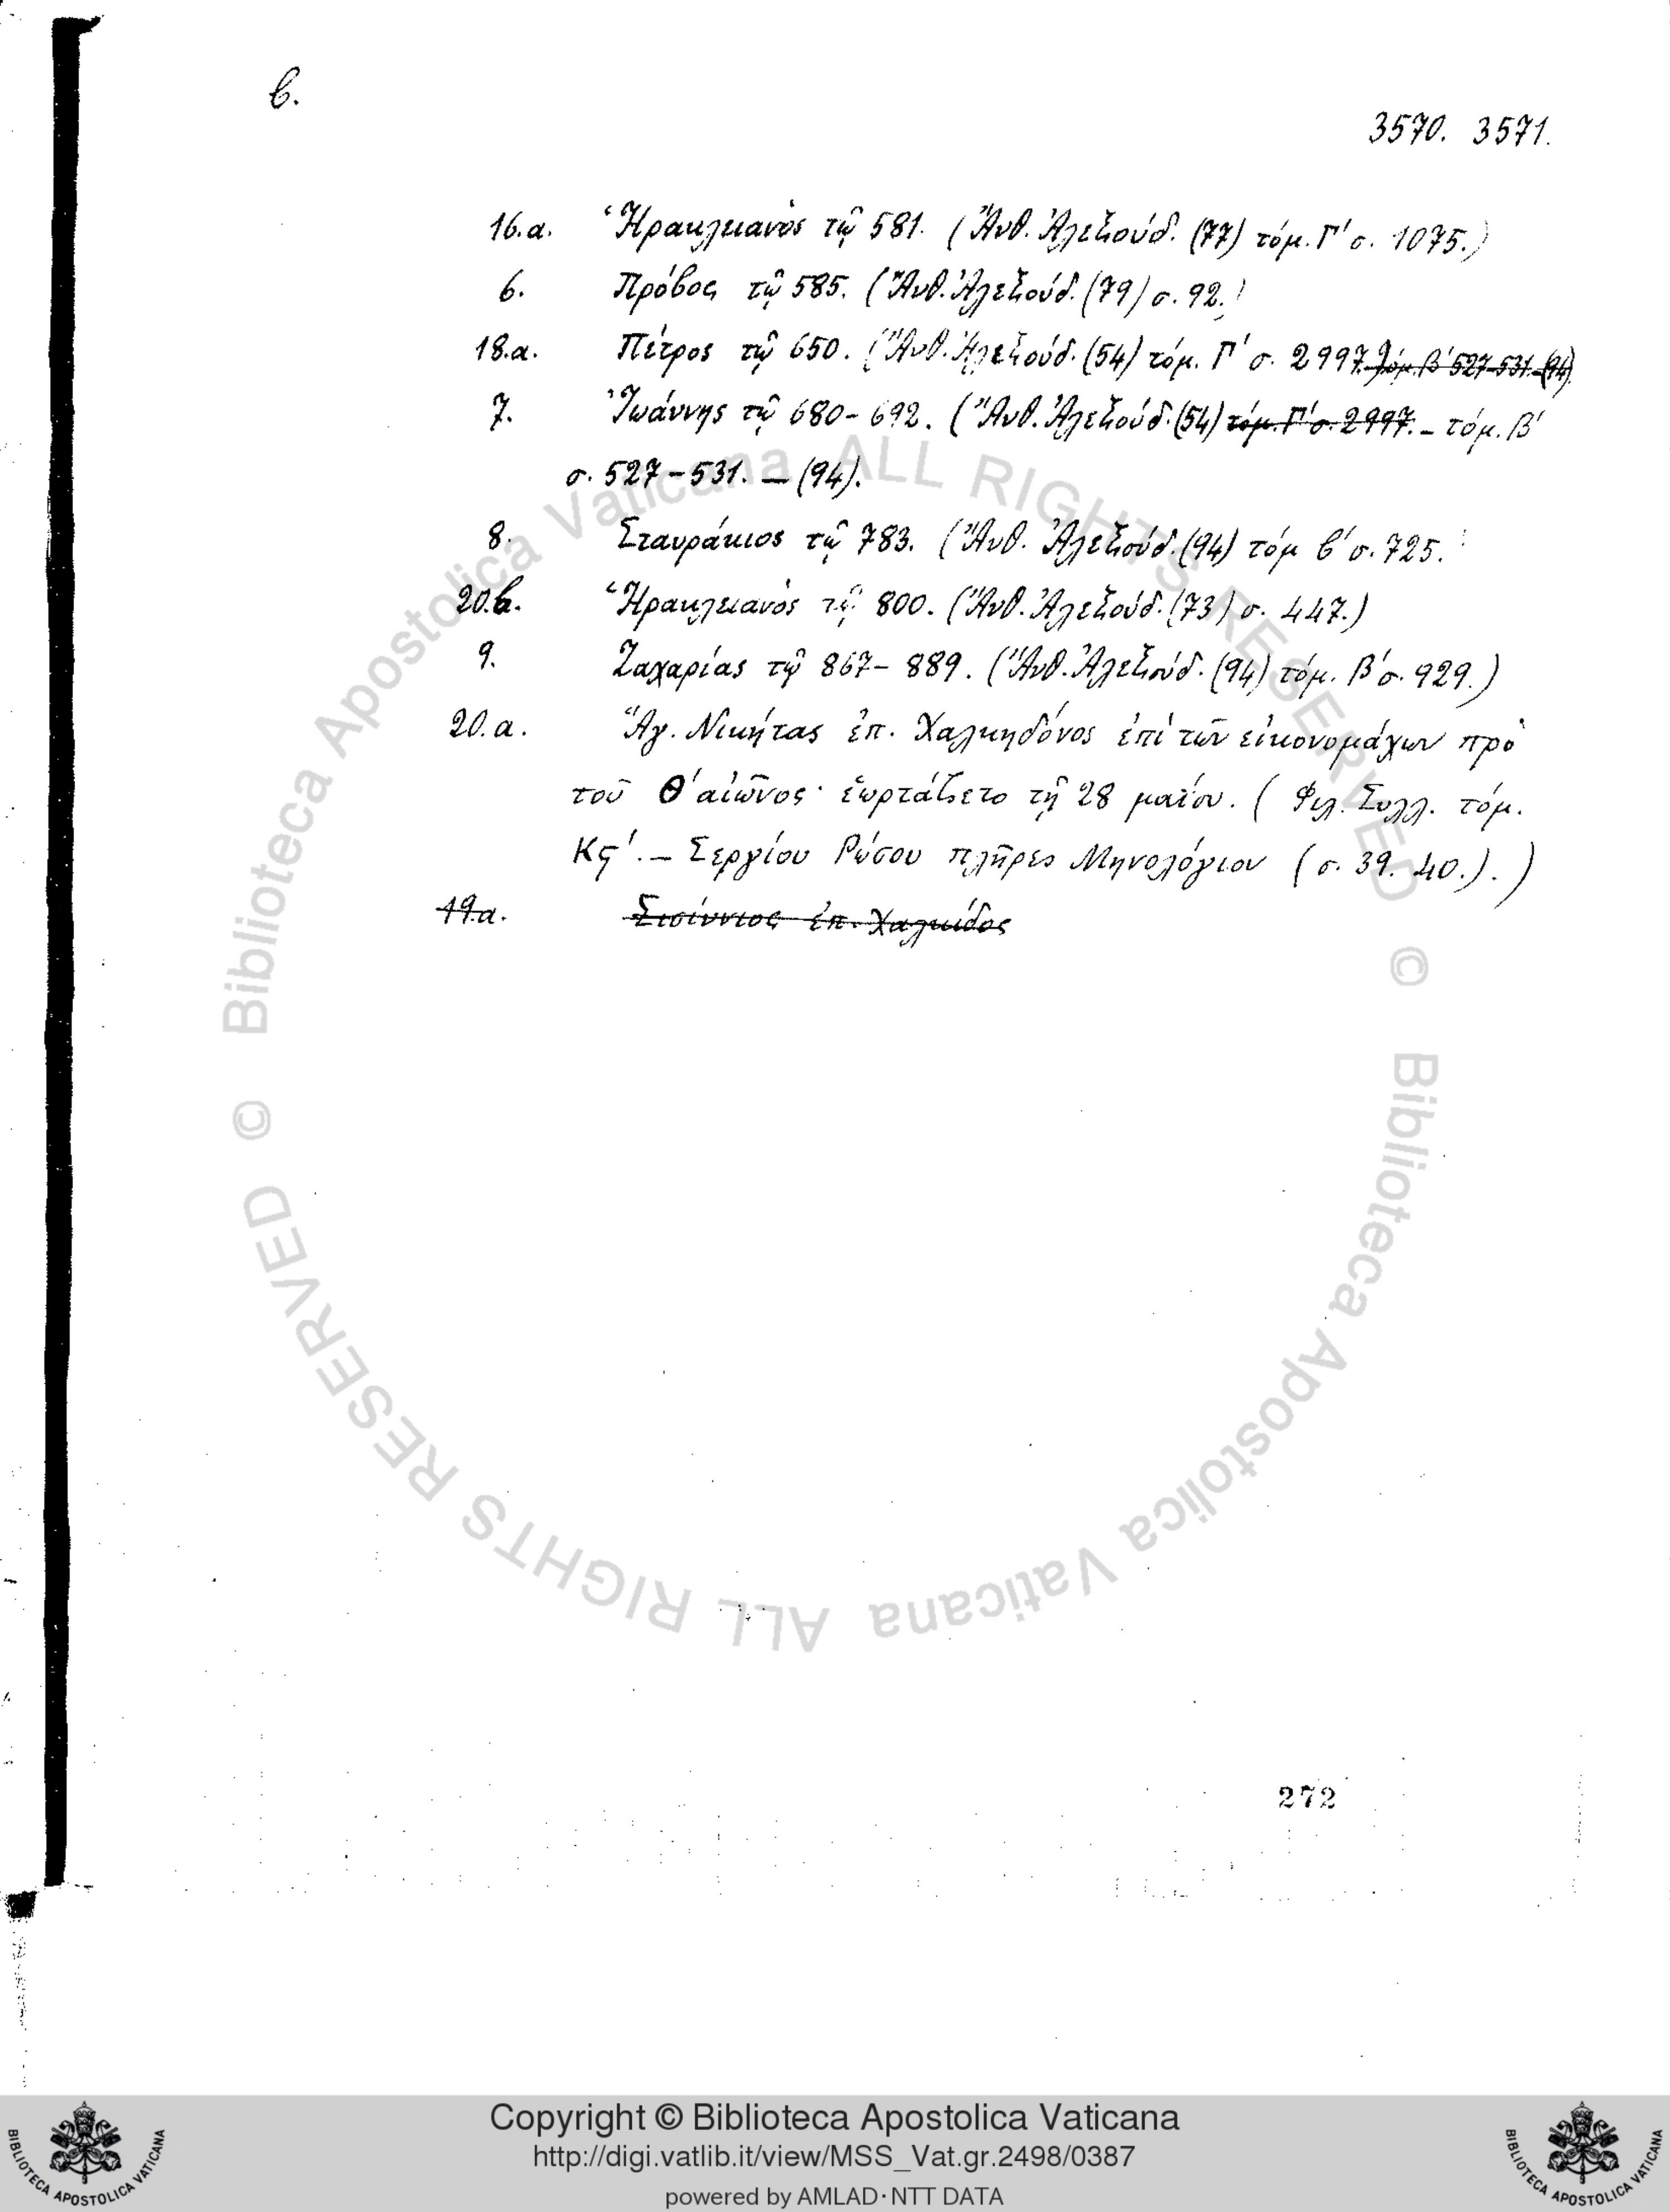 β.
3570. 3571.
16.α. Ἡρακλειανὸς τῷ 581. (Ἄνθ. Ἀλεξούδ. (77) τόμ. Γ' σ. 1075.)
6. Πρόβος τῷ 585. (Ἄνθ. Ἀλεξούδ. (79) σ. 92.)
18.α. Πέτρος τῷ 650. (Ἄνθ. Ἀλεξούδ. (54) τόμ. Γ' σ. 2997. τόμ. β' 527-531. (94)
7. Ἰωάννης τῷ 680-692. (Ἄνθ. Ἀλεξούδ. (54) τόμ. Γ' σ. 2997. – τόμ. β'
σ. 527-531. – (94).
8. Σταυράκιος τῷ 783. (Ἄνθ. Ἀλεξούδ. (94) τόμ β' σ. 725.
20.β. Ἡρακλειανὸς τῷ 800. (Ἄνθ. Ἀλεξούδ. (73) σ. 447.)
9. Ζαχαρίας τῷ 867-889. (Ἄνθ. Ἀλεξούδ. (94) τόμ. β' σ. 929.)
20.α. Ἅγ. Νικήτας ἐπ. Χαλκηδόνος ἐπὶ τῶν εἰκονομάχων πρὸ
τοῦ Θ' αἰῶνος· ἑωρτάζετο τῇ 28 μαΐου. (Φιλ. Συλλ. τόμ.
Κϛ'. – Σεργίου Ρώσου πλῆρες Μηνολόγιον (σ. 39. 40.).)
19.α. Σισίννιος ἐπ. Χαλκίδος
272
© Biblioteca Apostolica Vaticana ALL RIGHTS RESERVED © Biblioteca Apostolica Vaticana ALL RIGHTS RESERVED
Copyright © Biblioteca Apostolica Vaticana
http://digi.vatlib.it/view/MSS_Vat.gr.2498/0387
powered by AMLAD·NTT DATA
BIBLIOTECA APOSTOLICA VATICANA
BIBLIOTECA APOSTOLICA VATICANA